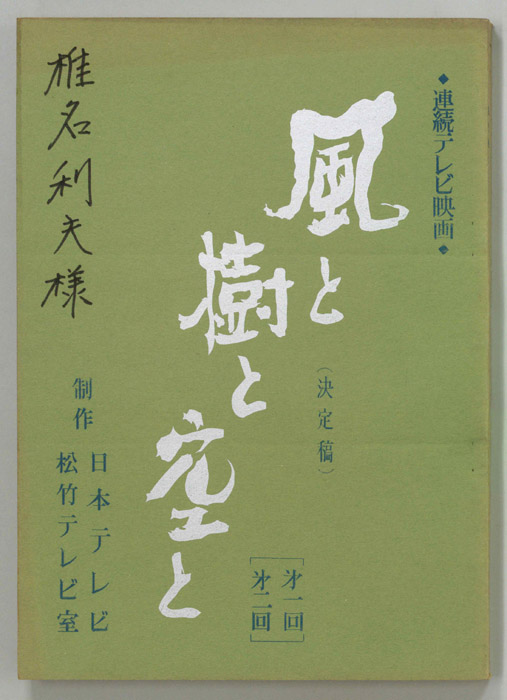 ◆連続テレビ映画◆
風と
樹と
空と
(決定稿)
[第一回
第二回]
制作
日本テレビ
松竹テレビ室
椎名利夫様